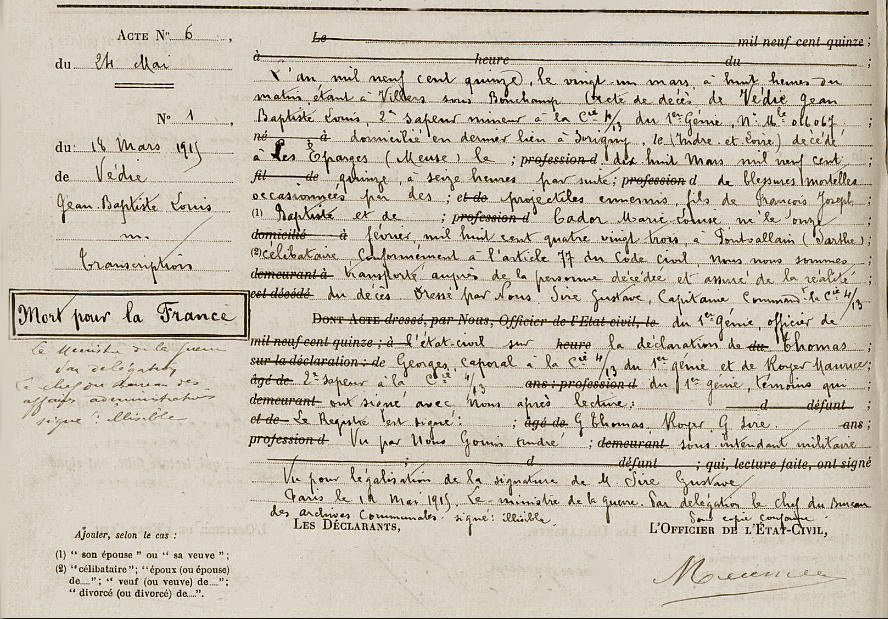 ACTE N° 6,
du 24 Mai
N° 1
du 18 Mars 1915
de Védie
Jean Baptiste Louis
m.
transcription
Mort pour la France
Le Ministre de la guerre
Par délégation
Le chef du bureau des
affaires administratives
signé : illisible
Ajouter, selon le cas :
(1) " son épouse " ou " sa veuve " ;
(2) " célibataire " ; " époux (ou épouse)
de.... " ; " veuf (ou veuve) de.... " ;
" divorcé (ou divorcé) de.... ".
Le mil neuf cent quinze ;
à heure du ;
L'an mil neuf cent quinze, le vingt un mars à huit heures du
matin, étant à Villers sous Bonchamp Acte de décès de Védie Jean
Baptiste Louis, 2e sapeur mineur à la Cie 4/13 du 1er Génie, N° Mle 06067
né à domicilié en dernier lieu à Sorigny, (Indre et Loire) décédé
à Les Eparges (Meuse) le ; profession d dix huit Mars mil neuf cent
fil de quinze, à seize heures par suite ; profession d de blessures mortelles
occasionnées par des ; et de projectiles ennemis, fils de François Joseph
(1) Baptiste et de ; profession d Cador Marie Louise né le onze
domicilié à février mil huit cent quatre vingt trois, à Pontvallain (Sarthe)
(2) célibataire. Conformément à l'article 77 du Code Civil, nous nous sommes
demeurant à transporté auprès de la personne décédée et assuré de la réalité
est décédé du décès Dressé par Nous, Sire Gustave, Capitaine Commandt la Cie 4/13
DONT ACTE dressé, par Nous, Officier de l'Etat civil, le du 1er Génie, officier de
mil neuf cent quinze ; à l'état-civil sur heure la déclaration de du Thomas
sur la déclaration : de Georges, Caporal à la Cie 4/13 du 1er génie et de Royer Maurice;
âgé de 2e sapeur à la Cie 4/13 ans : profession d du 1er génie, témoins qui
demeurant ont signé avec Nous après lecture : d défunt ;
et de Le Registre est signé : âgé de G Thomas, Royer, G Sire. ans ;
profession d Vu par Nous Gouin André ; demeurant sous-intendant militaire
; d défunt ; qui, lecture faite, ont signé
Vu pour légalisation de la signature de M. Sire Gustave
Paris le 12 Mai 1915, Le ministre de la guerre. Par délégation le chef du Bureau
des archives Communales. signé : illisible.
Pour copie conforme
LES DÉCLARANTS, L'OFFICIER DE L'ÉTAT-CIVIL,